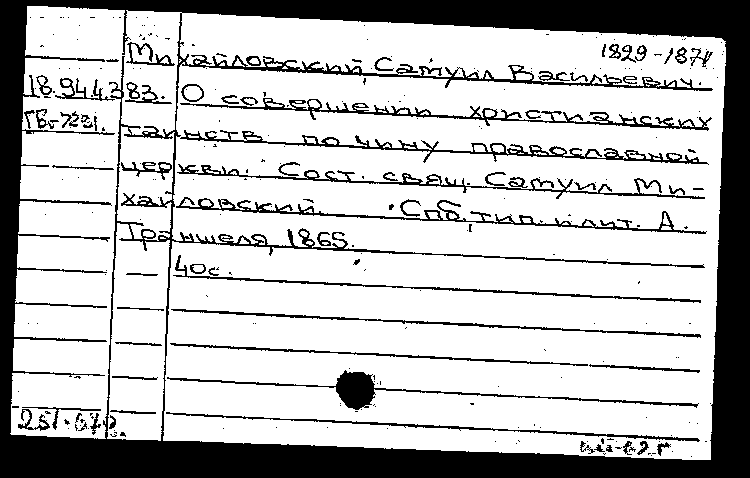 1829-1871
Михайловский, Самуил Васильевич.
18.944.383. О совершении христианских
таинств по чину православной
церкви. Сост. свящ. Самуил Ми-
хайловский. Спб, тип. и лит. А.
Траншеля, 1865.
40с.